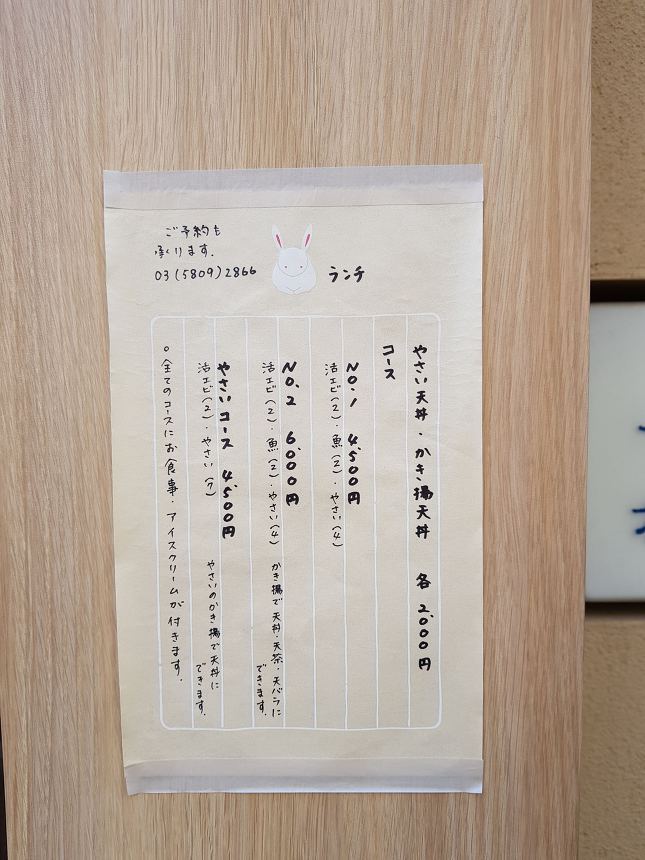 ご予約も
承ります.
03(5809)2866
ランチ
やさい天丼・かき揚天丼 各 2.000円
コース
NO.1 4.500円
活エビ(2)・魚(2)・やさい(4)
NO.2 6.000円
活エビ(2)・魚(2)・やさい(4)
かき揚で天丼・天茶・天バラに
できます.
やさいコース 4.500円
活エビ(2)・やさい(7)
やさいのかき揚で天丼に
できます.
○全てのコースにお食事・アイスクリームが付きます.